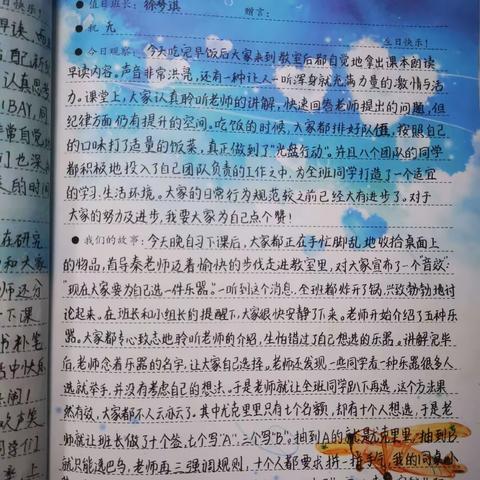 ● 值日班长：徐梦琪 赠言：
● 机 无 生日快乐！
● 今日观察：今天吃完早饭后大家来到教室后都自觉地拿出课本朗读
早读内容。声音非常洪亮，还有一种让人一听浑身就充满力量的激情与活
力。课堂上，大家认真聆听老师的讲解，快速回答老师提出的问题，但
纪律方面仍有提升的空间。吃饭的时候，大家都排好队伍，按照自己
的口味打了适量的饭菜，真正做到了“光盘行动”。并且八个团队的同学
都积极地投入了自己团队负责的工作之中，为全班同学打造了一个适宜
的学习、生活环境。大家的日常行为规范较之前已经大有进步了。对于
大家的努力及进步，我要大家为自己点个赞！
● 我们的故事：今天晚自习下课后，大家都正在手忙脚乱地收拾桌面上
的物品，肖导秦老师迈着愉快的步伐走进教室里，对大家宣布了一个“首议：
“现在大家要为自己选一件乐器。”一听到这个消息，全班都炸开了锅，兴致勃勃地讨
论起来。在班长和小组长的提醒下，大家很快安静了下来。老师开始介绍了五种乐
器。大家都专心致志地聆听老师的介绍，生怕错过了自己想选的乐器。讲解完毕
后，老师念着乐器的名字，让大家自己选择。老师还发现一些同学看一种乐器很多人
选就举手，并没有考虑自己的想法。于是老师就让全班同学趴下再选，这个方法果
然有效，大家都不人云亦云了。其中尤克里里只有七个名额，却有十个人想选，于是老
师就让班长做了十个签，七个写“A”，三个写“B”。抽到A的就是尤克里里，抽到B
就只能选巴乌，老师再三强调规则，十个人都要求拼一拼手气，我的同桌小
认真思考
BAY，同
常自觉地
们也深
的时间
在研究
和大家
师还分
下课
书补笔
中快乐